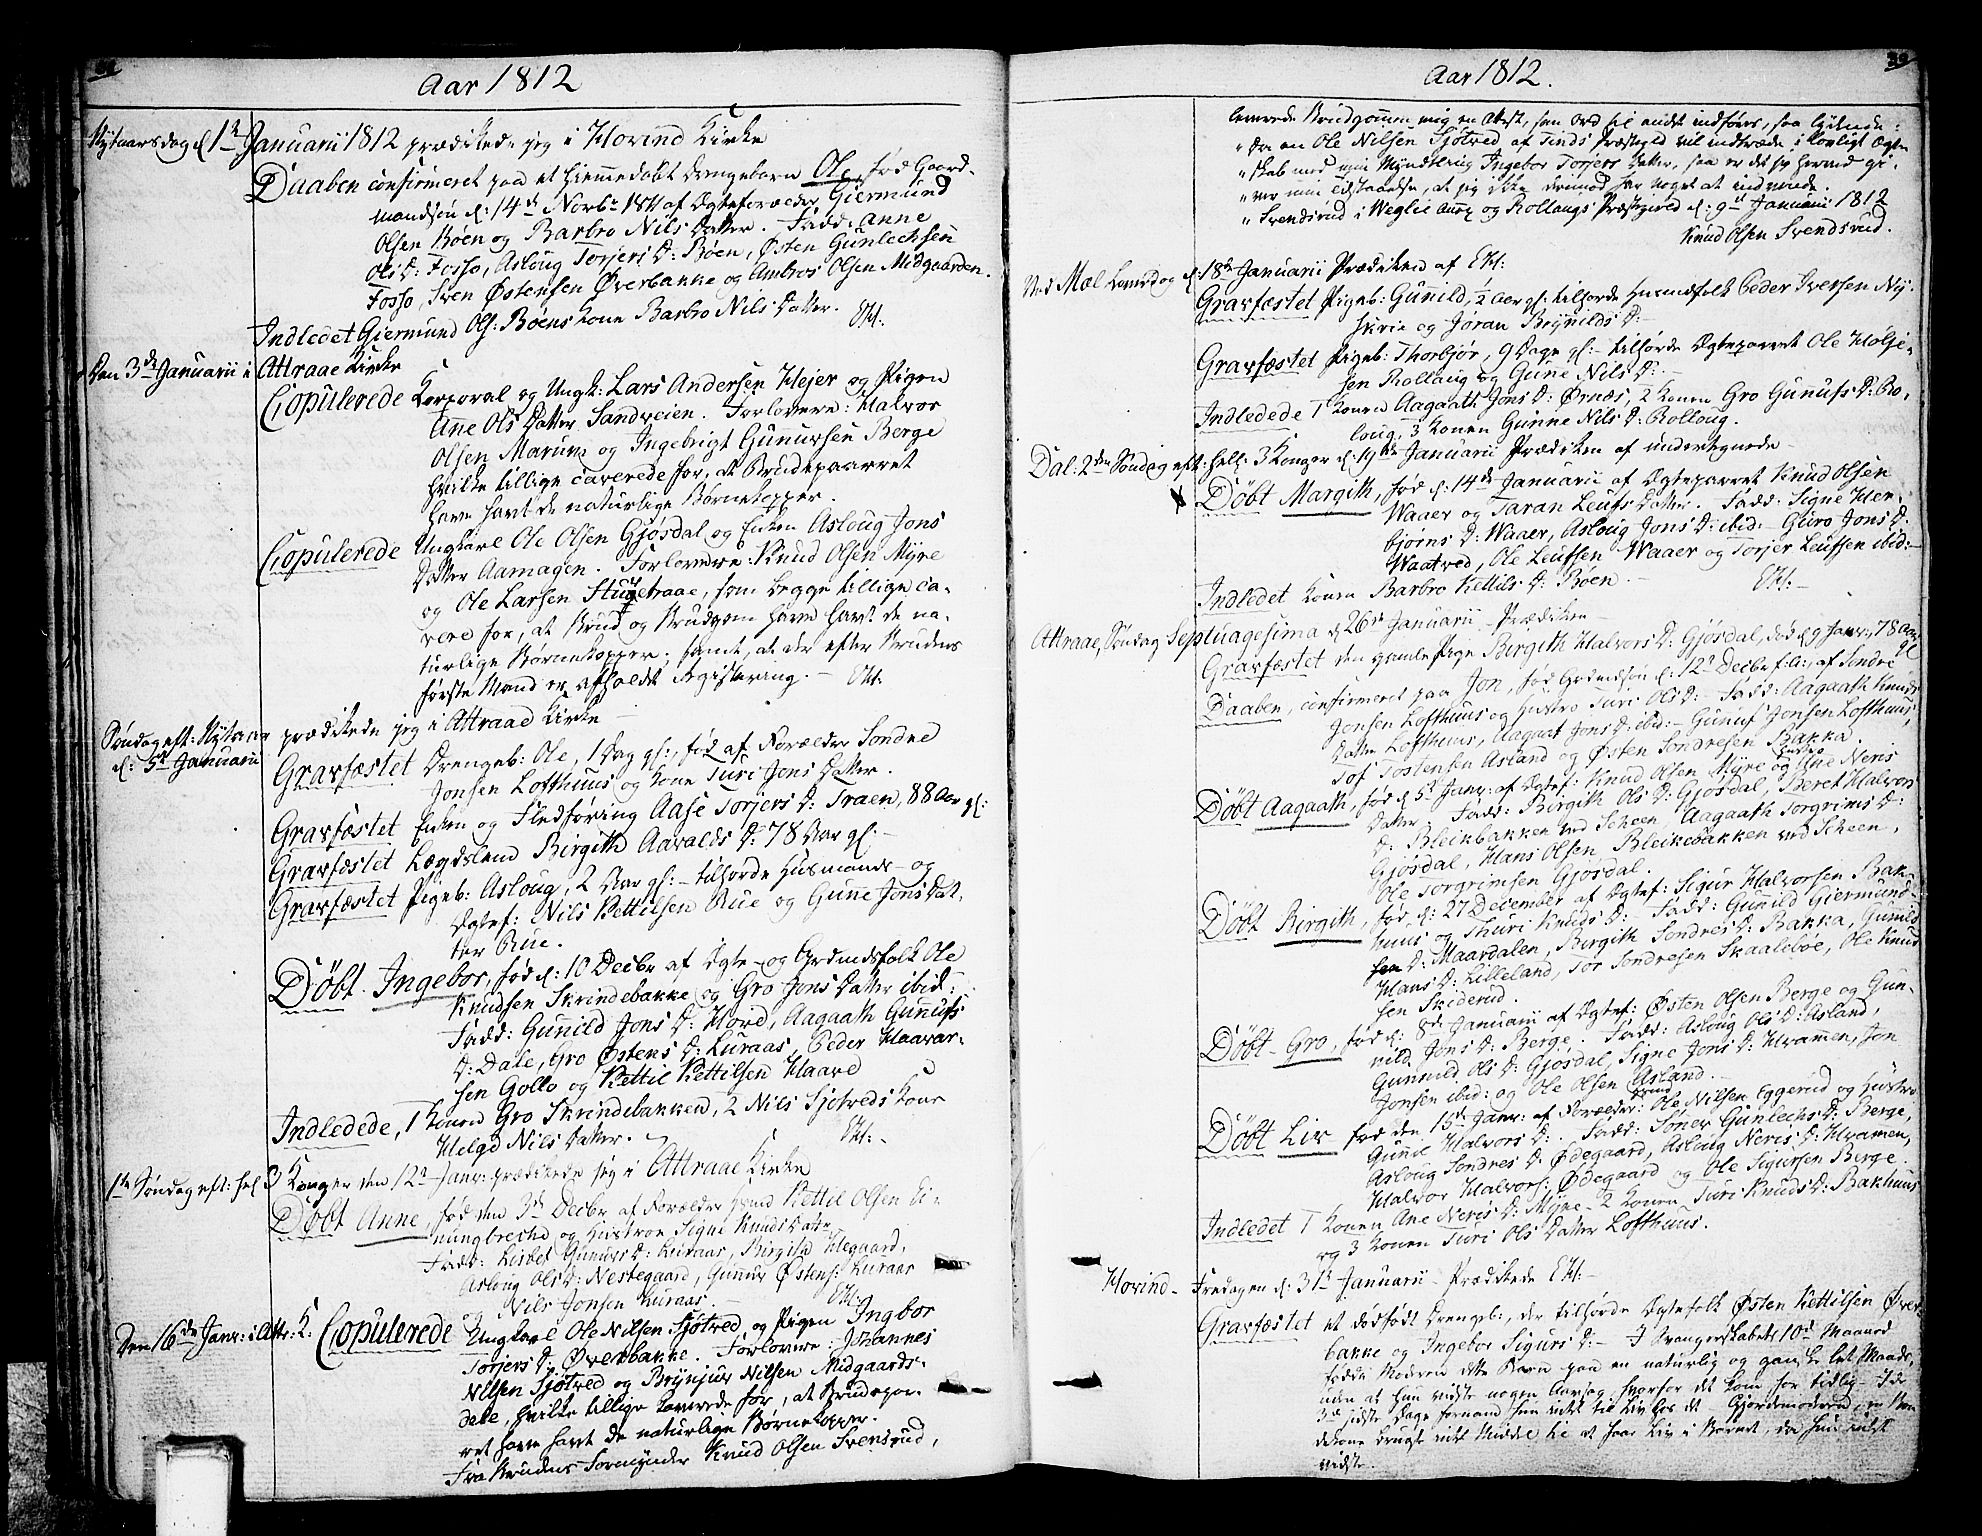 Aar 1812
Nytaarsdag d: 1ste Januarii 1812 prædikede jeg i Hovind Kirke
Daaben confirmeret paa et hiemmedøbt Drengebarn Ole, fød Gaard-
mandsøn d: 14de Novbr 1811 af Ægteforældre Giermund
Olsen Bøen og Barbro Nils Datter. Fadd: Anne
Ols D: Fosso, Asloug Torjers D: Bøen, Østen Gunlechsen
Fosso, Sven Østensen Øverbakke og Ambros Olsen Midgaarden.
Indledet Giermund Ols: Bøens Kone Barbro Nils Datter.
Den 3de Januarii i Attraae Kirke
Copulerede Korporal og Ungk: Lars Andersen Hejer og Pigen
Ane Ols Datter Sandveien. Forlovere: Halvor
Olsen Marum og Ingebrigt Gunursen Berge
hvilke tillige caverede for, at Brudeparret
have havt de naturlige Børnekopper.
Copulerede Ungkarl Ole Olsen Gjøsdal og Enken Asloug Jons
Datter Aamagen. Forlovere: Knud Olsen Myre
og Ole Larsen, som begge tillige ca-
vere for, at Brud og Brudgom have havt de na-
turlige Børnekopper, samt, at der efter Brudens
første Mand er afholdt Registering.
Søndag eft: Nytaar prædikede jeg i Attraae Kirke
d: 5te Januarii
Gravfæstet Drengeb: Ole, 1 Dag gl:, fød af Forældre Sondre
Jonsen Lofthuus og Kone Turi Jons Datter.
Gravfæstet Enken og Fledføring Aase Torjers D: Traen, 88 Aar gl:
Gravfæstet Lægdslem Birgith Aavalds D: 78 Aar gl:
Gravfæstet Pigeb: Asloug, 2 Aar gl: tilhørde Husmands- og
Ægtef: Nils Kettilsen Rue og Gune Jons Dat-
ter Rue.
Døbt Ingebor, fød d: 10 Decbr af Ægte- og Grdmdsfolk Ole
Knudsen Skrindebakke og Gro Jons Datter ibid:
Fadd: Gunild Jons D: Hovd, Aagaath Gunufs
D: Dale, Gro Østens D: Luraas, Peder Haavar-
sen Gollo og Kettil Kettilsen Haave
Indledede, 1 Konen Gro Skrindebakken, 2 Nils Sjøtveds Kone
Helgo Nils Datter.
1ste Søndag eft: hel: 3 Konger den 12te Janr: prædikede jeg i Attraae Kirke
Døbt Anne, fød den 3de Decbr af Forældre Kettil Olsen
og Hustroe Signe Knuds Datter
Fadd: Lisbet Gunurs D: Luraas, Birgith Hegaard,
Asloug Ols D: Nestegaard, Gunnur Østens: Luraas
og Nils Jonsen Luraas.
Den 16de Janr: i Attr: K: Copulerede Ungkarl Ole Nilsen Sjøtved og Pigen Ingbor
Torjers D: Øverbakke. Forlovere: Johannes
Nilsen Sjøtved og Brynjuv Nilsen Midgaards-
dale, hvilke tillige caverede for, at Brudepar-
ret have havt de naturlige Børnekopper.
Fra Brudens Formynder Knud Olsen Svensrud,
Aar 1812.
leverede Brudgommen mig en Attest, som Ord til andet indføres, saa lydende:
"Da en Ole Nilsen Sjøtved af Tinds Præstegield vil indtræde i lovligt Ægte-
"skab med min Myndtling Ingebor Torjers Datter, saa er det jeg herved gi-
"ver min tilstaaelse, at jeg ikke derimod har noget at indvende.
"Svendsrud i Weglie Anex og Rollaugs Præstegield d: 9de Januarii 1812
Knud Olsen Svendsrud.
Ved Mæl Løverdag d: 18de Januarii Prædikend af
Gravfæstet Pigeb: Gunild, ½ Aar gl: tilhørde Husmdfolk Peder Iversen
og Jøran Brynilds D:
Gravfæstet Pigeb: Thorbjør, 9 Dage gl: tilhørde Ægteparret Ole Holje-
sen Rollaug og Gune Nils D:
Indledede 1 Konen Aagaath Jons D: Ørnæs, 2 Konen Gro Gunufs D: Bo-
loug, 3 Konen Gunne Nils D: Rolloug.
Dal: 2den Søndag eft: hell: 3 Konger d: 19de Januarii Prædiken af undertegnede
Døbt Margith, fød d: 14de Januarii af Ægteparret Knud Olsen
Waaer og Taran Leufs Datter. Fadd: Signe Her-
bjørns D: Waaer, Asloug Jons D: ibid: Guro Jons D:
Waatved, Ole Leufsen Waaer og Torjer Leufsen ibid:
Indledet Konen Barbro Kettils D: Bøen.
Attraae, Søndag Septuagesima d: 26de Januarii Prædiken
Gravfæstet den gamle Pige Birgith Halvors D: Gjøsdal, død d: 9 Janr, 78 Aar gl
Daaben, confirmeret paa Jon, fød Grdmdsøn d: 12te Decbr f: A:, af Sondre
Jonsen Lofthuus og Hustro Turi Ols D: Fadd: Aagaath Knuds
Datter Lofthuus, Aagaat Jons D: ibid: Gunuf Jonsen Lofthuus,
Tof Tostensen Asland og Østen Sondresen Bakka.
Døbt Aagaath, fød d: 5te Janr: af Ægtef: Knud Olsen Myre og Hustro Ane Neris
Datter. Fadd: Birgith Ols D: Gjøsdal, Beret Halvors
D: Bleikbakken ved Scheen, Aagaath Torgrims D:
Gjøsdal, Hans Olsen Bleikebakken ved Scheen,
Ole Torgrimsen Gjøsdal.
Døbt Birgith, fød d: 27 December af Ægtef: Sigur Halvorsen Bak-
huus og Thuri Knuds D: Fadd: Gunild Giermund-
sen D: Maardalen, Birgith Sondres D: Bakka, Gunild
Hans D: Lilleland, Tor Sondresen Skaalebøe, Ole Knud
sen Skiderud.
Døbt Gro, fød d: 8de Januarii af Ægtef: Østen Olsen Berge og Gun-
nild Jons D: Berge. Fadd: Asloug Ols D: Asland,
Gunnild Ols D: Gjøsdal, Signe Jons D: Hvammen, Jon
Jonsen ibid: og Ole Olsen Asland.
Døbt Liv fød den 15de Janr: af Forældre: Ole Nilsen Eggerud og Hustro
Gunil Halvors D: Fadd: Sønev Gunlechs D: Berge,
Asloug Sondres D: Ødegaard, Asloug Neris D: Hvamen,
Halvor Halvors: Ødegaard og Ole Sigursen Berge.
Indledet 1 Konen Ane Neris D: Myre 2 Konen Turi Knuds D: Bakhuus
og 3 Konen Turi Ols Datter Lofthuus.
Hovind Fredagen d: 31te Januarii Prædikede
Gravfæstet et dødfødt Drengeb:, der tilhørde Ægtefolk Østen Kettilsen Øver-
bakke og Ingebor Sigurs D: I Svangerskabets 10de Maaned
fødte Moderen dette Barn paa en naturlig og ganske let Maade,
uden at hun vidste nogen Aarsag, hvorfor det kom for tidlig
sidste Dage fornam hun intet til Liv hos det Gjordemoderen,
brugte intet Middel til at faae Liv i Barnet, da hun intet
vidste.